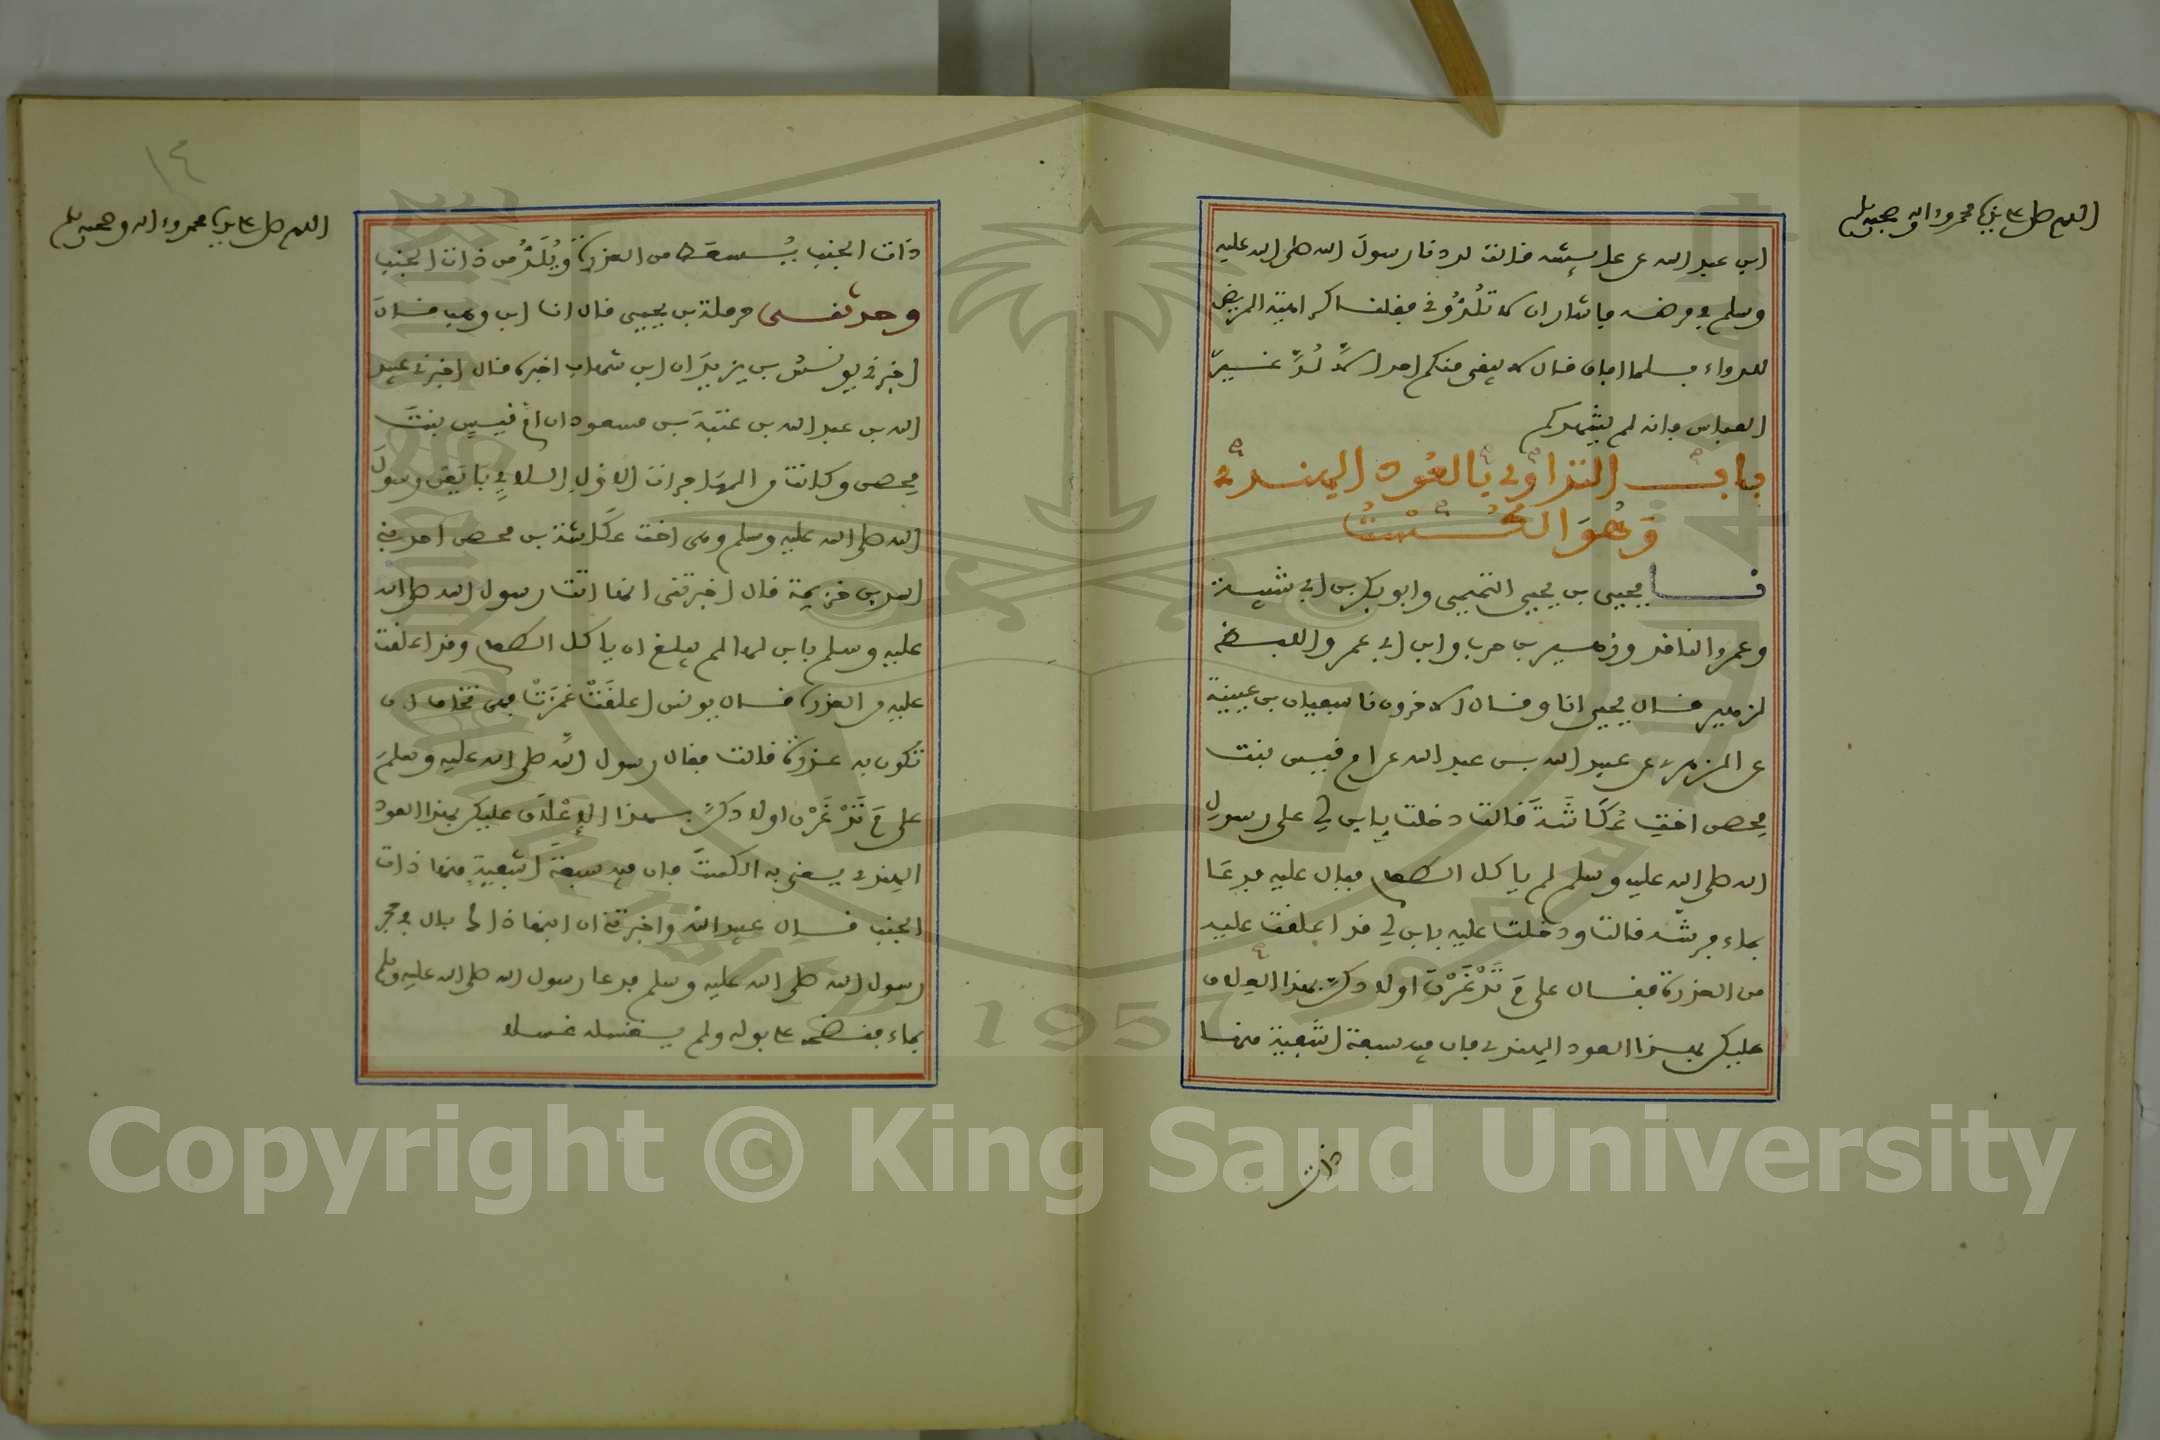 اللهم صل على نبيك محمد وءاله وصحبه وسلم
ابن عبد الله عن عايشة قالت لددنا رسول الله صلى الله عليه
وسلم في مرضه فاشار ان لا تلدوني فقلنا كراهية المريض
للدواء فلما افاق قال لا يبقى منكم احد الا لد غير
العباس فانه لم يشهدكم
باب التداوي بالعود الهندي
وهو الكست
نا يحيى بن يحيى التميمي وابو بكر بن ابي شيبة
وعمرو الناقد وزهير بن حرب وابن ابي عمر واللفظ
لزهير قال يحيى انا وقال الاخرون نا سفيان بن عيينة
عن الزهري عن عبيد الله بن عبد الله عن ام قيس بنت
محصن اخت عكاشة قالت دخلت بابن لي على رسول
الله صلى الله عليه وسلم لم ياكل الطعام فبال عليه فدعا
بماء فرشه قالت ودخلت عليه بابن لي قد اعلقت عليه
من العذرة فقال على مَ تَدْغَرْنَ اولادكن بهذا العلاق
عليكن بهذا العود الهندي فان فيه سبعة اشفية منها
ذات
١٤
اللهم صل على نبيك محمد وءاله وصحبه وسلم
ذات الجنب يُسعط من العذرة ويُلَدُّ من ذات الجنب
وحدثنى حرملة بن يحيى قال انا ابن وهب قال
اخبرني يونس بن يزيد ان ابن شهاب اخبره قال اخبرني عبيد
الله بن عبد الله بن عتبة بن مسعود ان ام قيس بنت
محصن وكانت من المهاجرات الاول اللاتي بايعن رسول
الله صلى الله عليه وسلم وهي اخت عكاشة بن محصن احد بني
اسد بن خزيمة قال اخبرتني انها اتت رسول الله صلى الله
عليه وسلم بابن لها لم يبلغ ان ياكل الطعام وقد اعلقت
عليه من العذرة قال يونس اعلقَتْ غمزَتْ فهي تخاف ان
تكون به عذرة قالت فقال رسول الله صلى الله عليه وسلم
على مَ تَدْغَرْن اولادكن بهذا الإعْلَاق عليكن بهذا العود
الهندي يعني به الكست فان فيه سبعة اشفية منها ذات
الجنب قال عبيد الله واخبرتني ان ابنها ذاك بال في حجر
رسول الله صلى الله عليه وسلم فدعا رسول الله صلى الله عليه وسلم
بماء فنضحه على بوله ولم يغسله غسلا
1957
Copyright © King Saud University